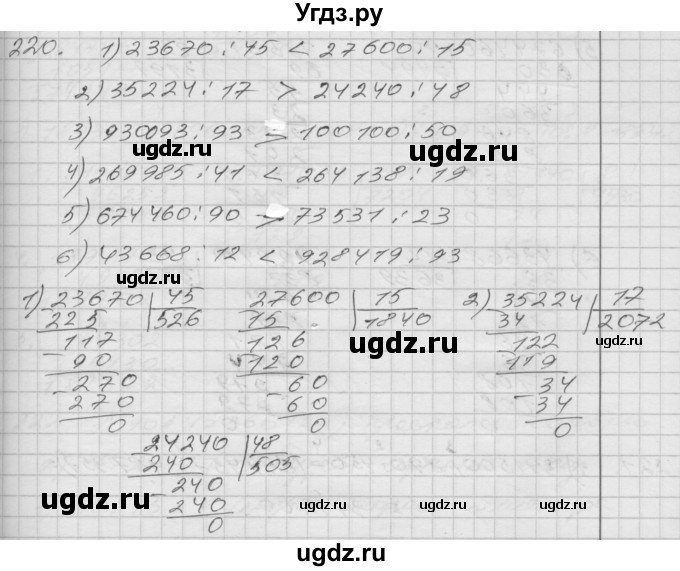 Угдз.ру
220. 1) 23670 : 45 < 27600 : 15
2) 35224 : 17 > 24240 : 48
ugdz.ru
3) 930093 : 93 > 100100 : 50
ugdz.ru
4) 269985 : 41 < 264138 : 19
5) 674460 : 90 > 73531 : 23
6) 43668 : 12 < 928419 : 93
ugdz.ru
1) 23670 | 45 27600 | 15 2) 35224 | 17
225 526 15 1840 34 2072
117 126 122
90 120 119
270 60 34
270 60 34
0 0 0
24240 | 48
240 505
240
240
0
ugdz.ru ugdz.ru ugdz.ru ugdz.ru
ugdz.ru